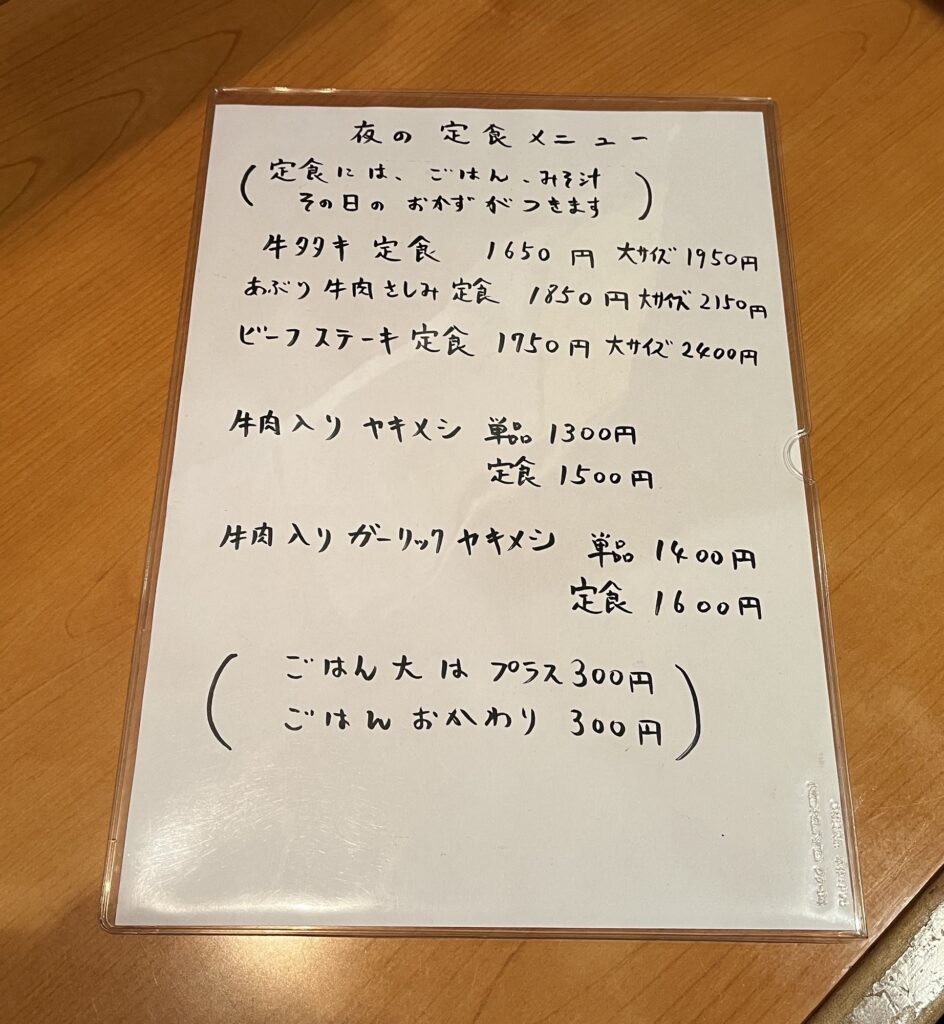 夜の定食メニュー
(定食には、ごはん、みそ汁
その日のおかずがつきます)
牛タタキ定食 1650円 大サイズ 1950円
あぶり牛肉さしみ定食 1850円 大サイズ 2150円
ビーフステーキ定食 1950円 大サイズ 2400円
牛肉入りヤキメシ 単品 1300円
定食 1500円
牛肉入りガーリックヤキメシ 単品 1400円
定食 1600円
(ごはん大はプラス300円
ごはんおかわり 300円)